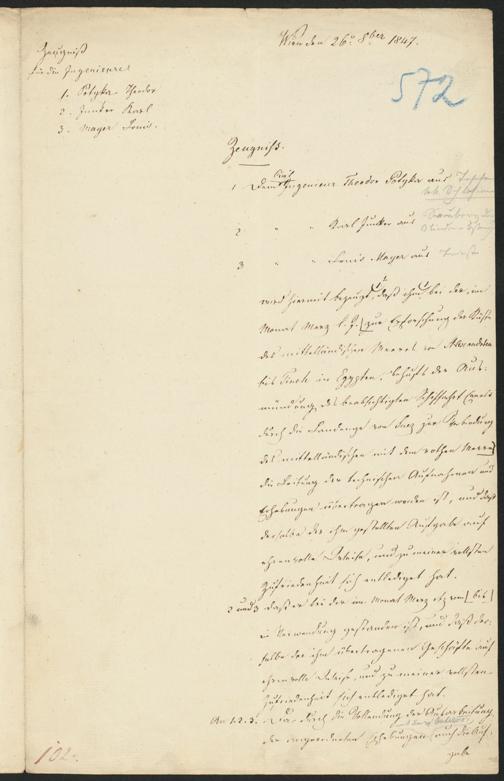 Wien den 26t 8ber 1847.
572
Zeugniß
für die Ingenieure
1. Potyka Theodor
2. Junker Karl
3. Mayer Louis.
Zeugniß.
1 Dem Civil Ingenieur Theodor Potyka aus
2 " " Karl Junker aus
3 " " Louis Mayer aus Triest
wird hiermit bezeugt, daß ihm bei der, im
Monat Merz l. J. [zur Erforschung der Küste
des mittelländischen Meeres von Alexandrien
bis Tineh in Egypten, behufs der Aus-
mündung des beabsichtigten Schiffahrt Canals
durch die Landenge von Suez zur Verbindung
des mittelländischen mit dem rothen Meere]
die Leitung der technischen Aufnahmen und
Erhebungen übertragen worden ist, und daß
derselbe der ihm gestellten Aufgabe auf
ehrenvolle Weise, und zu meiner vollsten
Zufriedenheit sich entlediget hat.
2 und 3 daß er bei der im Monat Merz etz von [bis]
in Verwendung gestanden ist, und daß der-
selbe der ihm übertragenen Geschäfte auf
ehrenvolle Weise, und zu meiner vollsten
Zufriedenheit sich entlediget hat.
An 1. 2. 3. Da durch die Vollendung der Ausarbeitung
der angeordneten Erhebungen auch die Auf-
gabe
102.